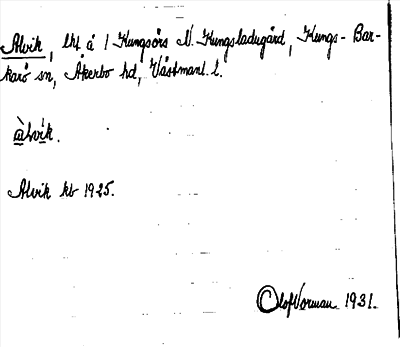 Alvik, lht å 1 Kungsörs N. Kungsladugård, Kungs-Bar-
karö sn, Åkerbo hd, Västmanl. l.
àlvi̇k.
Alvik kb 1925.
Olof Vorman. 1931.